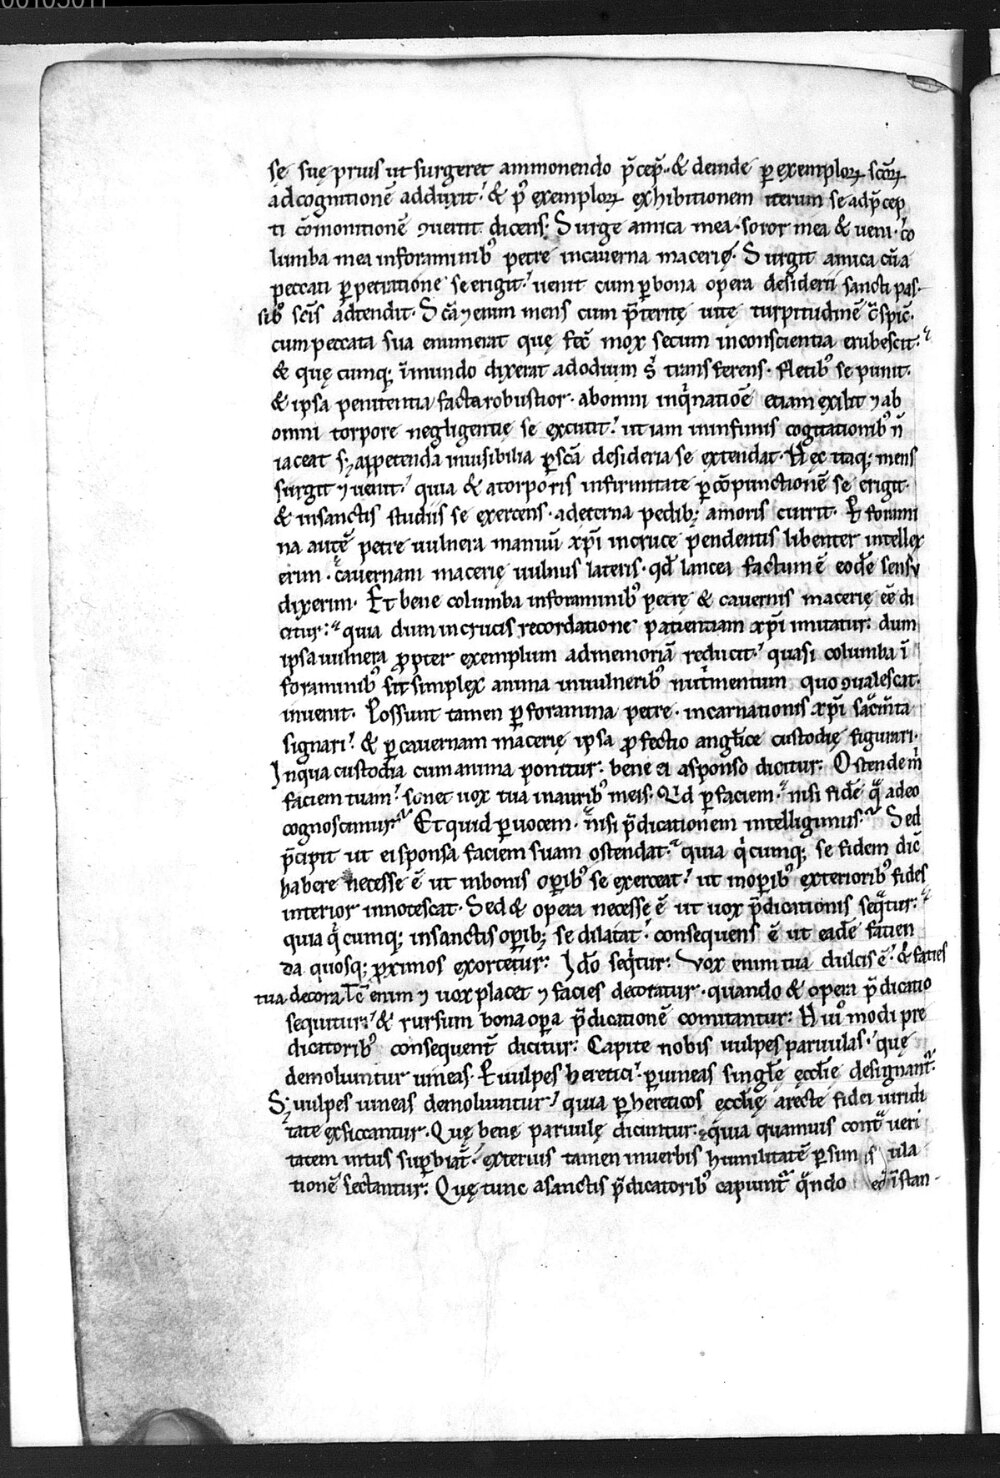 00105011
sę suę prius ut surgeret ammonendo p̄cep̄. & deinde ꝑ exemploꝝ sc̄oꝝ
ad cognitionē adduxit. & p̄ exemploꝝ exhibitionem iterum se ad p̄cep
ti cōmonitionē ꝯuertit dicens. Surge amica mea. soror mea & ueni. co
lumba mea in foraminib; petre in cauerna macerię. Surgit amica cū a
peccati ꝑpetratione se erigit. uenit cum ꝑ bona opera desiderii sancti pas
sib; scīs adtendit. Sc̄a ⁊enim mens cum p̄teritę uitę turpitudinē ꝯspic̄.
cum peccata sua enumerat quę fec̄ mox secum in conscientia erubescit.
& quę cumq; ī mundo dixerat ad odium s̄ transferens. fletib; se punit.
& ipsa penitentia facta robustior. ab omni inq̇natiōe etiam exibit ⁊ ab
omni torpore negligentię se excutit. ut iam in infimis cogitationib; n̄
iaceat s; appetenda inuisibilia ꝑ sc̄a desideria se extendat. Hęc itaq; mens
surgit ⁊ uenit. quia & a torporis infirmitate ꝑ cōpunctionē se erigit.
& in sanctis studiis se exercens. ad eterna pedib; amoris currit. Et forami
na autē petre uulnera manuū xp̄i in cruce pendentis libenter intellex
erim. cauernam macerię uulnus lateris. qd̄ lancea factum ē eodē sensu
dixerim. Et bene columba in foraminib; petrę & cauernis macerię eē di
citur. quia dum in crucis recordatione patientiam xp̄i imitatur. dum
ipsa uulnera ꝓpter exemplum ad memoriā reducit. quasi columba ī
foraminib; sit simplex anima in uulnerib; nut̄mentum quo ꝯualescat.
inuenit. Possunt tamen ꝑ foramina petre. incarnationis xp̄i sac̄mta
signari. & ꝑ cauernam macerię ipsa ꝓfectio anglīce custodię figurari.
In qua custodia cum anima ponitur. bene ei a sponso dicitur. Ostende m̄
faciem tuam. sonet uox tua in aurib; meis. Qd̄ ꝑ faciem. nisi fidē q̄ a deo
cognoscimur. Et quid ꝑ uocem. nisi p̄dicationem intelligimus. Sed
p̄cipit ut ei sponsa faciem suam ostendat. quia q̇cumq; se fidem dic̄
habere necesse ē ut in bonis oꝑib; se exerceat. ut in oꝑib; exteriorib; fides
interior innotescat. Sed & opera necesse ē ut uox p̄dicationis seq̄tur.
quia q̇cumq; in sanctis oꝑib; se dilatat. consequens ē ut eadē facien
da quosq; ꝓximos exortetur. Idō seq̄tur. Vox enim tua dulcis ē. & facies
tua decora. Tc̄ enim ⁊ uox placet ⁊ facies decoratur. quando & opera p̄dicatio
sequitur. & rursum bona opa p̄dicationē comitantur. Hui᷒modi pre
dicatorib; consequent̄ dicitur. Capite nobis uulpes paruulas. quę
demoliuntur uineas. Et uulpes heretici. ꝑ uineas singlę ęcclīę designant̄.
S; uulpes uineas demoliuntur. quia ꝑ hereticos ęcclīę a recte fidei uiridi
tate exsiccantur. Quę bene paruulę dicuntur. quia quamuis cont̄ ueri
tatem intus suꝑbiāt. exterius tamen in uerbis humilitatē ꝑ sim is ula
tionē sectantur. Quę tunc a sanctis p̄dicatorib; capiunt̄ q̄ndo